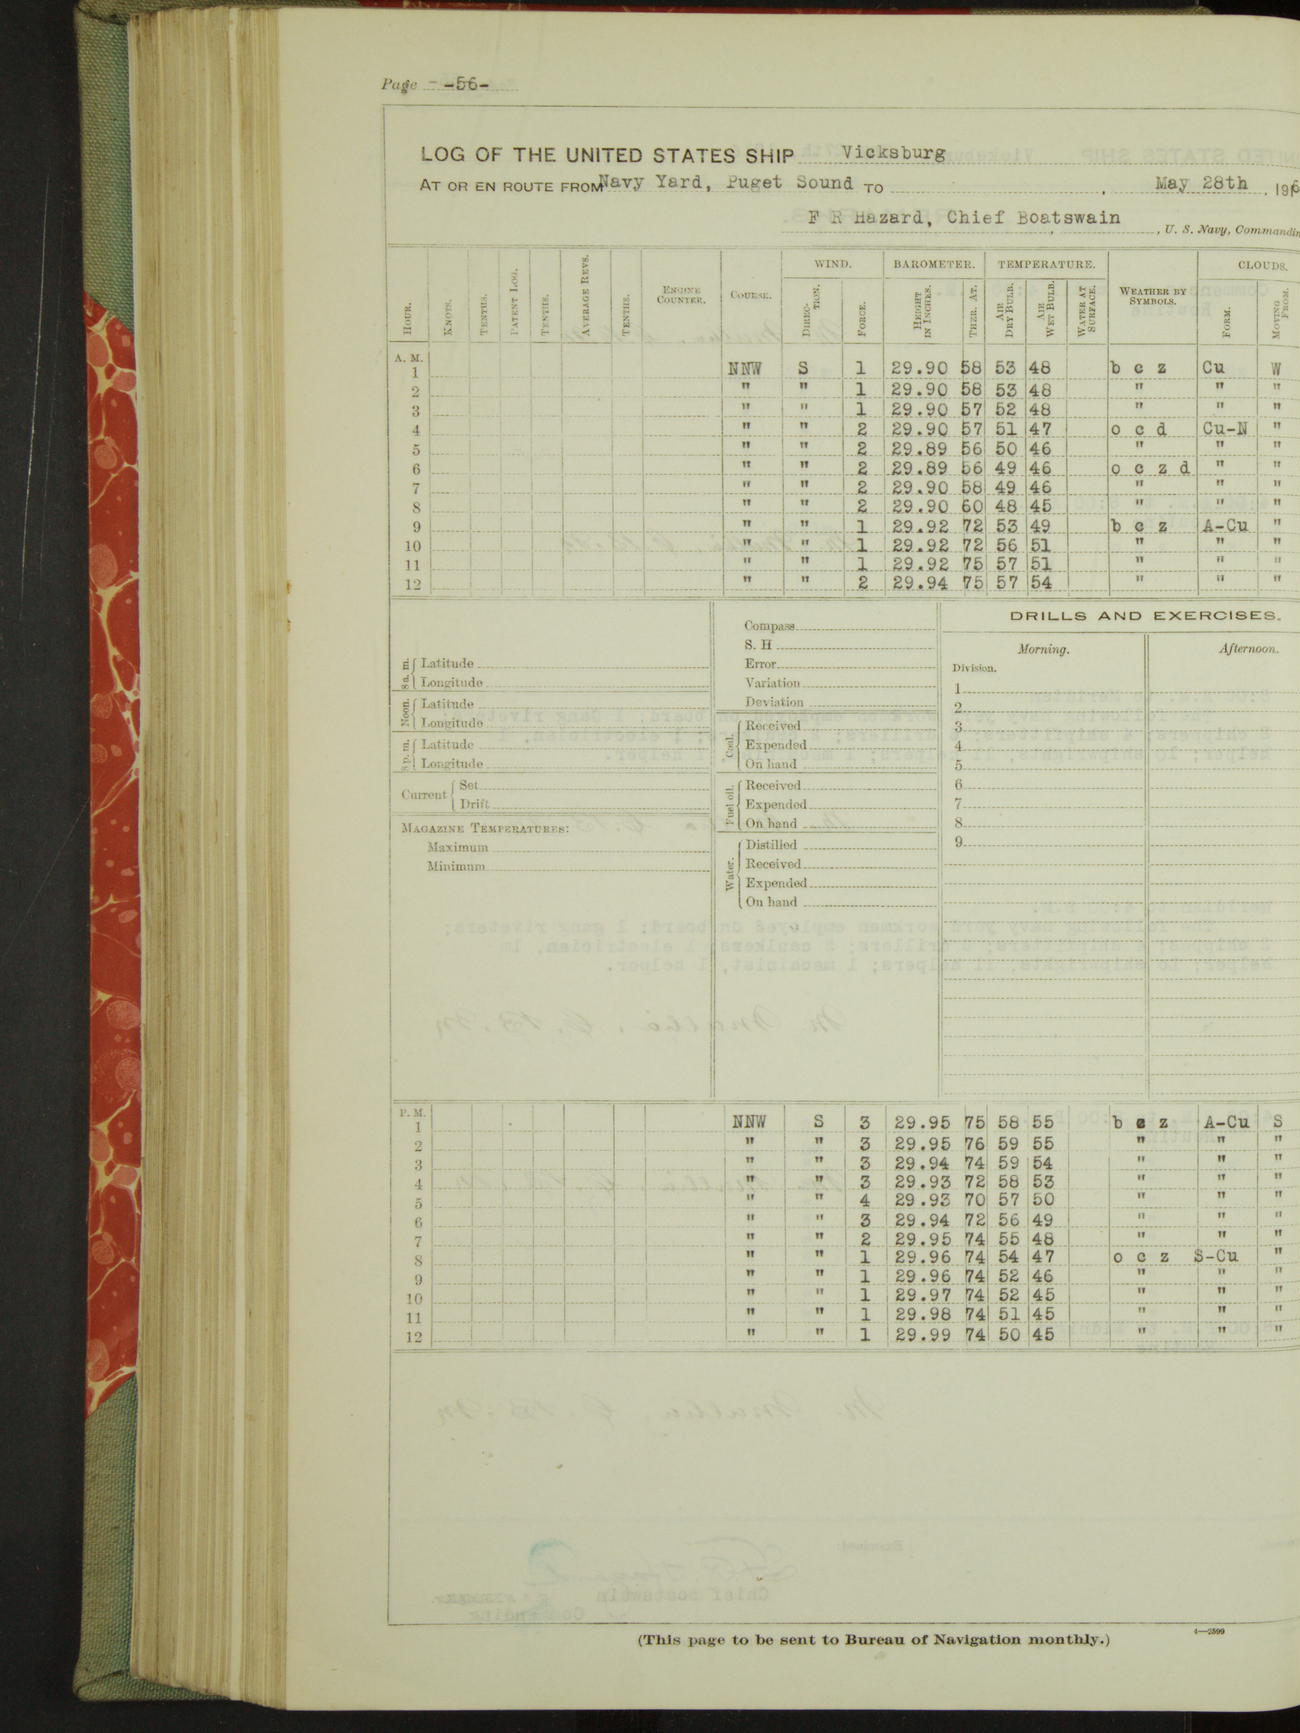 Page -56-
LOG OF THE UNITED STATES SHIP Vicksburg
AT OR EN ROUTE FROM Navy Yard, Puget Sound TO , May 28th , 19
F R Hazard, Chief Boatswain , U. S. Navy, Commandin
WIND. BAROMETER. TEMPERATURE. CLOUDS.
HOUR. KNOTS. TENTHS. PATENT LOG. TENTHS. AVERAGE REVS. TENTHS. ENGINE COUNTER. COURSE. DIREC-TION. FORCE. HEIGHT IN INCHES. THER. AT. AIR DRY BULB. AIR WET BULB. WATER AT SURFACE. WEATHER BY SYMBOLS. FORM. MOVING FROM.
A. M.
1 NNW S 1 29.90 58 53 48 b c z Cu W
2 " " 1 29.90 58 53 48 " " "
3 " " 1 29.90 57 52 48 " " "
4 " " 2 29.90 57 51 47 o c d Cu-N "
5 " " 2 29.89 56 50 46 " " "
6 " " 2 29.89 56 49 46 o c z d " "
7 " " 2 29.90 58 49 46 " " "
8 " " 2 29.90 60 48 45 " " "
9 " " 1 29.92 72 53 49 b c z A-Cu "
10 " " 1 29.92 72 56 51 " " "
11 " " 1 29.92 75 57 51 " " "
12 " " 2 29.94 75 57 54 " " "
8 a. m. Latitude
Longitude
Noon. Latitude
Longitude
8 p. m. Latitude
Longitude
Current Set
Drift
MAGAZINE TEMPERATURES:
Maximum
Minimum
Compass
S. H
Error
Variation
Deviation
Coal. Received
Expended
On hand
Fuel oil. Received
Expended
On hand
Water. Distilled
Received
Expended
On hand
DRILLS AND EXERCISES.
Morning. Afternoon.
Division.
1
2
3
4
5
6
7
8
9
P. M.
1 NNW S 3 29.95 75 58 55 b c z A-Cu S
2 " " 3 29.95 76 59 55 " " "
3 " " 3 29.94 74 59 54 " " "
4 " " 3 29.93 72 58 53 " " "
5 " " 4 29.93 70 57 50 " " "
6 " " 3 29.94 72 56 49 " " "
7 " " 2 29.95 74 55 48 " " "
8 " " 1 29.96 74 54 47 o c z S-Cu "
9 " " 1 29.96 74 52 46 " " "
10 " " 1 29.97 74 52 45 " " "
11 " " 1 29.98 74 51 45 " " "
12 " " 1 29.99 74 50 45 " " "
(This page to be sent to Bureau of Navigation monthly.)
4—2599